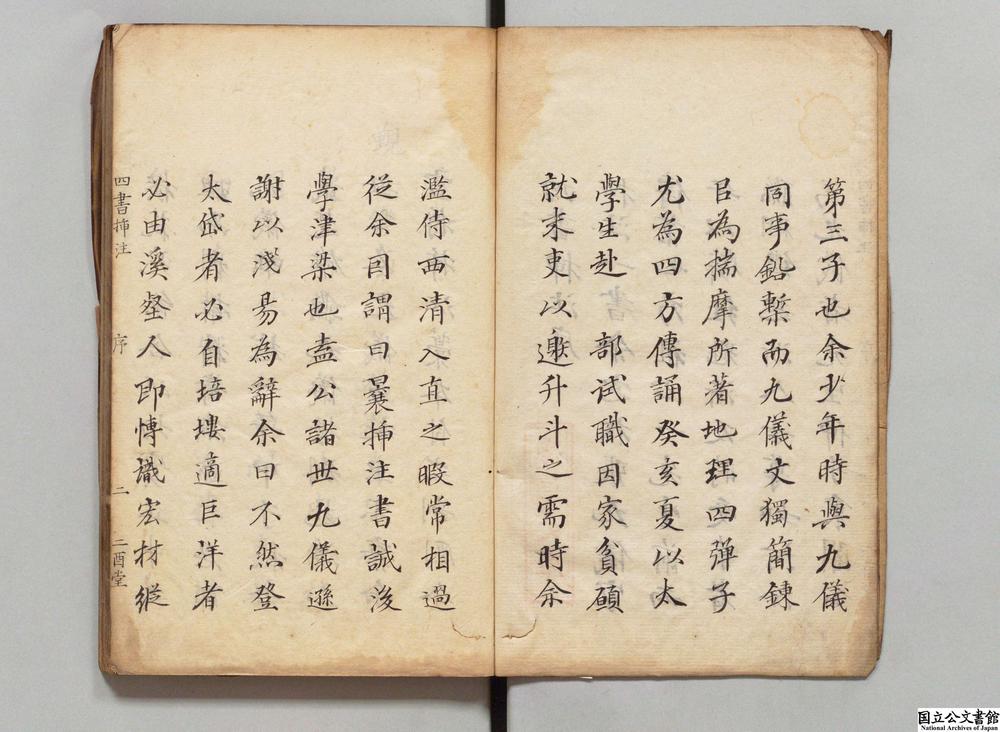 第三子也余少年時與九儀
同事鉛槧而九儀文獨簡鍊
㠯為揣摩所著地理四弹子
尤為四方傳誦癸亥夏以太
學生赴 部試職因家貧願
就末吏以邀升斗之需時余
濫侍西清入直之暇常相過
從余因謂曰曩揷注書誠後
學津梁也盍公諸世九儀遜
謝以淺易為辭余曰不然登
太岱者必自培塿適巨洋者
必由溪壑人即慱識宏材縱
四書揷注 序 二 二酉堂
国立公文書館
National Archives of Japan